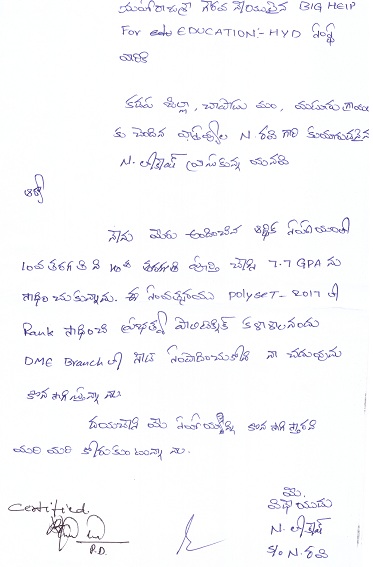 మహారాజశ్రీ గౌరవ నీయులైన BIG HELP
For EDUCATION - HYD సంస్థ
వారికి
కడప జిల్లా, చాపాడు మం, గ్రామం
కు చెందిన N. రవి గారి కుమారుడైన
N. వ్రాసుకున్న మనవి
ఆర్య
నేను మీరు అందించిన ఆర్థిక సహాయంతో
10వ తరగతి ని పూర్తి చేసి 7.7 GPA ను
సాధించుకున్నాను. ఈ సంవత్సరము polycet - 2017 లో
Rank సాధించి ప్రభుత్వ పాలిటెక్నిక్ కళాశాలనందు
DME Branch లో సీటు సంపాదించుకొని నా చదువును
కొనసాగిస్తున్నాను.
దయచేసి మీ సహాయాన్ని కొనసాగిస్తారని
మరి మరి కోరుకుంటున్నాను.
Certified
P.D.
మీ
విధేయుడు
N.
S/o N. రవి